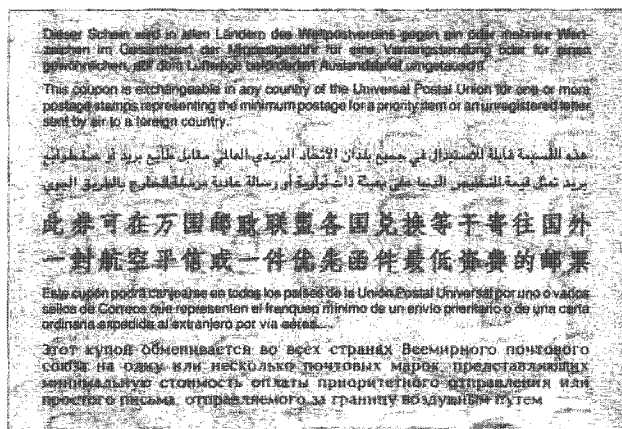 Dieser Schein wird in allen Ländern des Weltpostvereins gegen ein oder mehrere Wert-
zeichen im Gesamtwert der Mindestgebühr für eine Vorrangsendung oder für einen
gewöhnlichen, auf dem Luftwege beförderten Auslandsbrief umgetauscht.
This coupon is exchangeable in any country of the Universal Postal Union for one or more
postage stamps representing the minimum postage for a priority item or an unregistered letter
sent by air to a foreign country.
هذه القسيمة قابلة للاستبدال في جميع بلدان الاتحاد البريدي العالمي مقابل طابع بريد أو عدة طوابع
بريد تمثل قيمة التخليص الدنيا على بعيثة ذات أولوية أو رسالة عادية مرسلة للخارج بالطريق الجوي
此券可在万国邮政联盟各国兑换等于寄往国外
一封航空平信或一件优先函件最低资费的邮票
Este cupón podrá canjearse en todos los países de la Unión Postal Universal por uno o varios
sellos de Correos que representen el franqueo mínimo de un envío prioritario o de una carta
ordinaria expedida al extranjero por vía aérea.
Этот купон обменивается во всех странах Всемирного почтового
союза на одну или несколько почтовых марок, представляющих
минимальную стоимость оплаты приоритетного отправления или
простого письма, отправляемого за границу воздушным путем